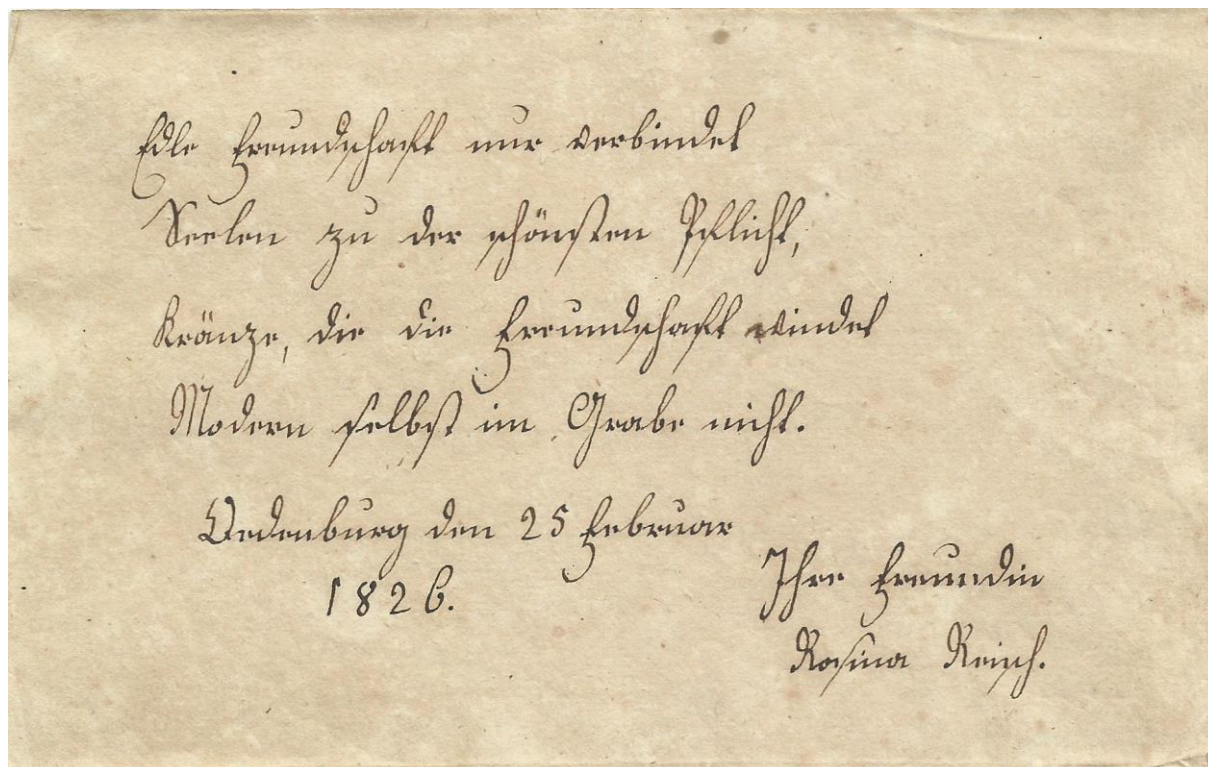 Edle Freundschaft nur verbindet
Seelen zu der schönsten Pflicht,
Kränze, die die Freundschaft windet
Modern selbst im Grabe nicht.
Oedenburg den 25 Februar
1826.
Ihre Freundin
Rosina Reisch.